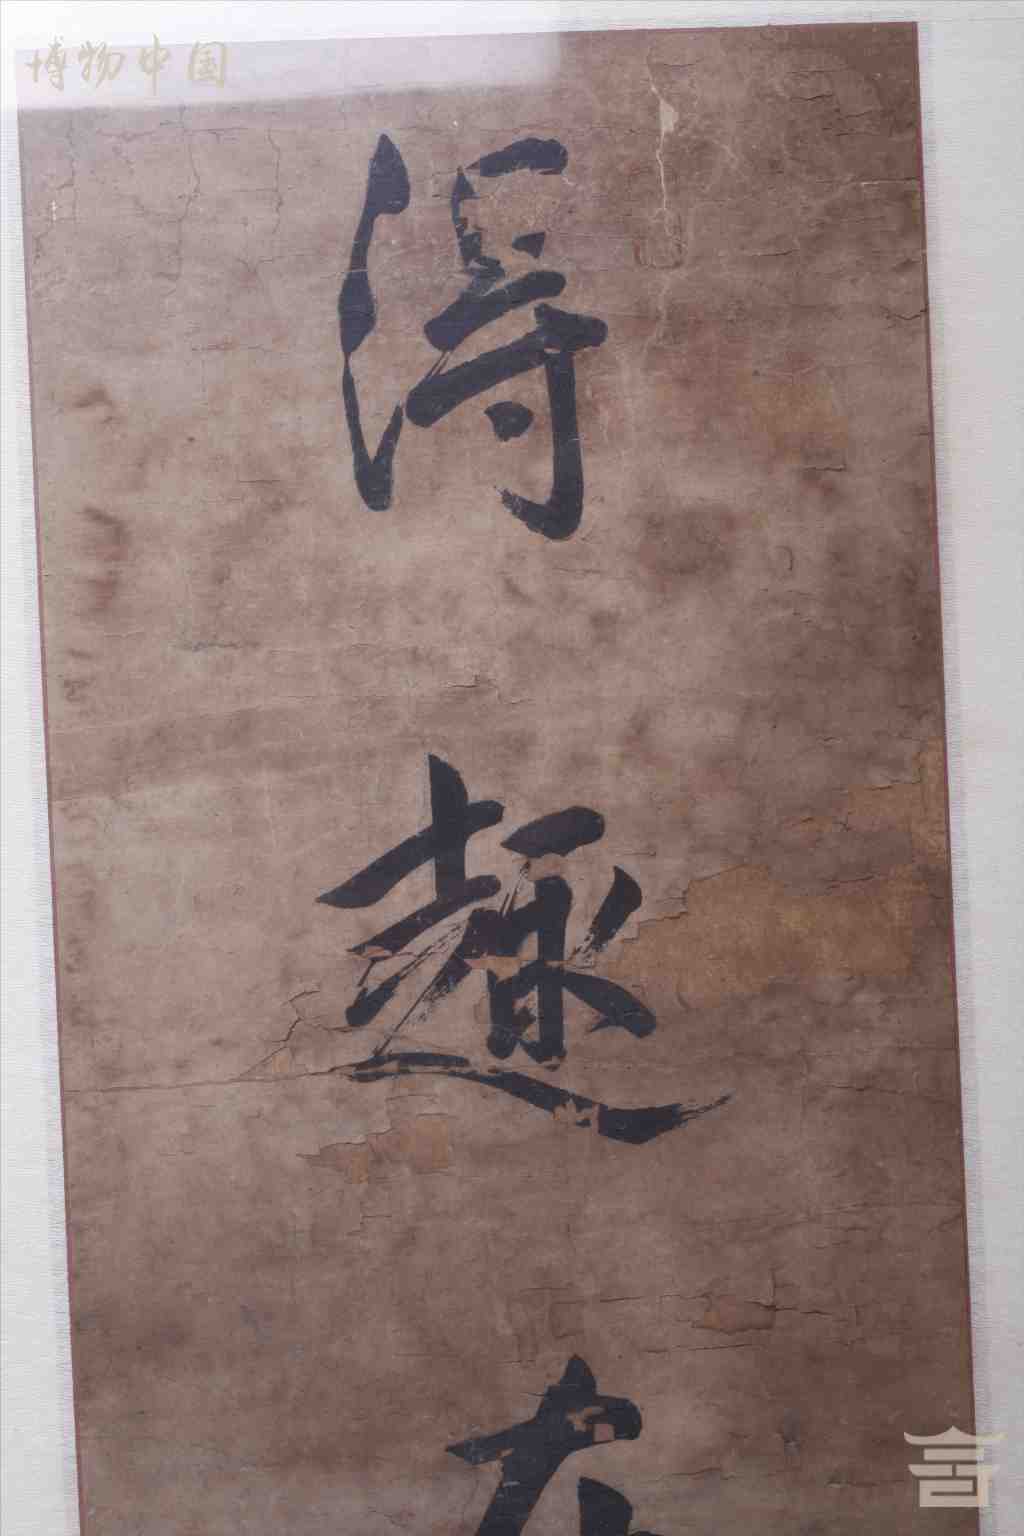 博物中国
得趣在